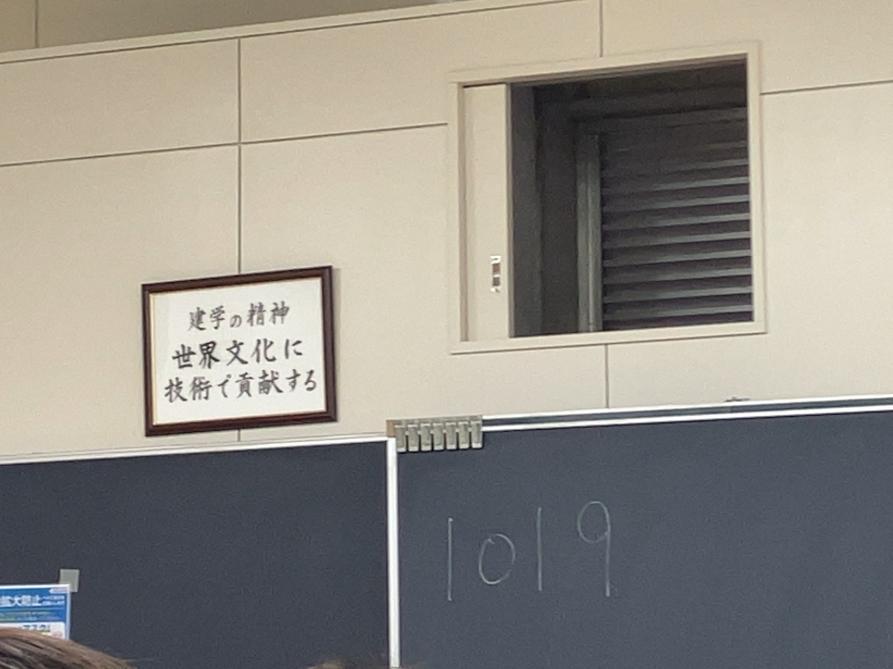 建学の精神
世界文化に
技術で貢献する
1019
拡大防止